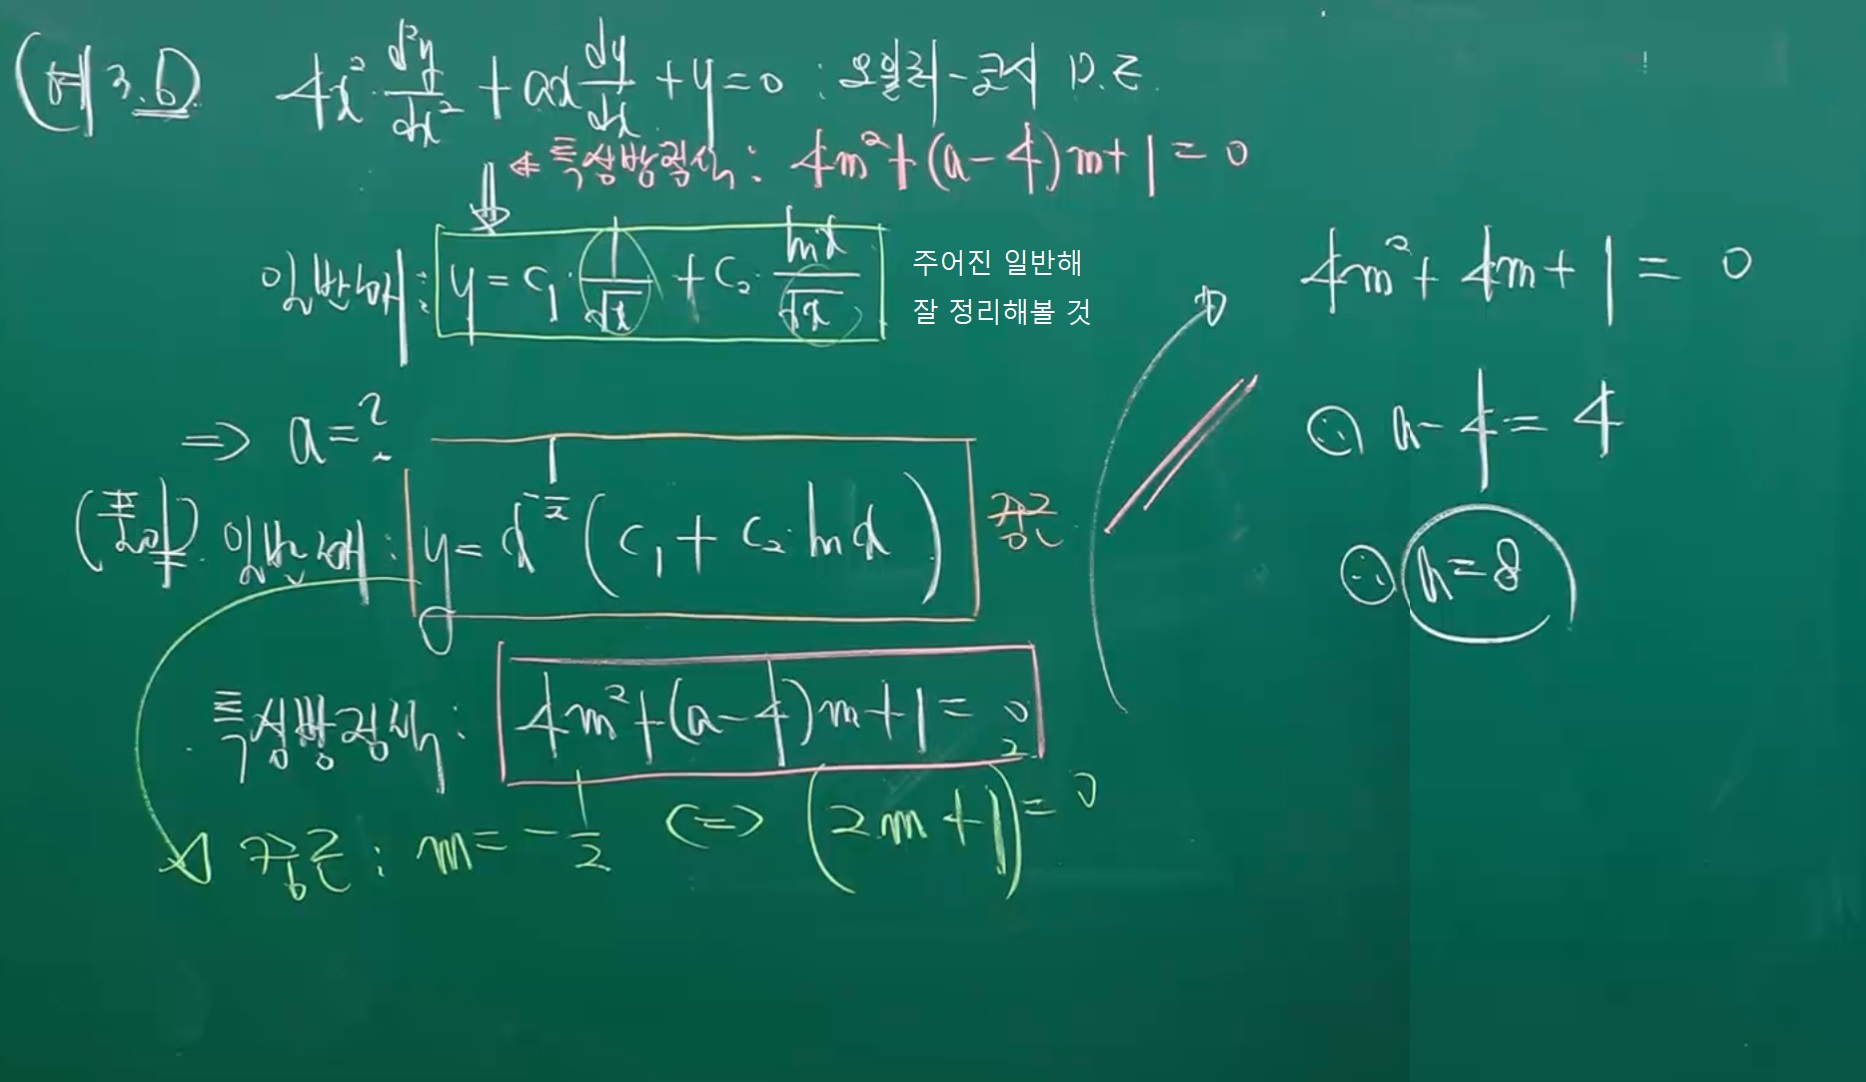 (예 3.6) 4x² d²y/dx² + ax dy/dx + y = 0 : 오일러-코시 D.E.
⇐ 특성방정식 : 4m² + (a-4)m + 1 = 0
일반해 : y = c₁ · 1/√x + c₂ · ln x/√x
주어진 일반해
잘 정리해볼 것
⇒ a = ?
(풀이) 일반해 : y = x^(-1/2) (c₁ + c₂ ln x) 중근
특성방정식 : 4m² + (a-4)m + 1 = 0
중근 : m = -1/2 ⇔ (2m+1)² = 0
4m² + 4m + 1 = 0
∴ a-4 = 4
∴ a = 8